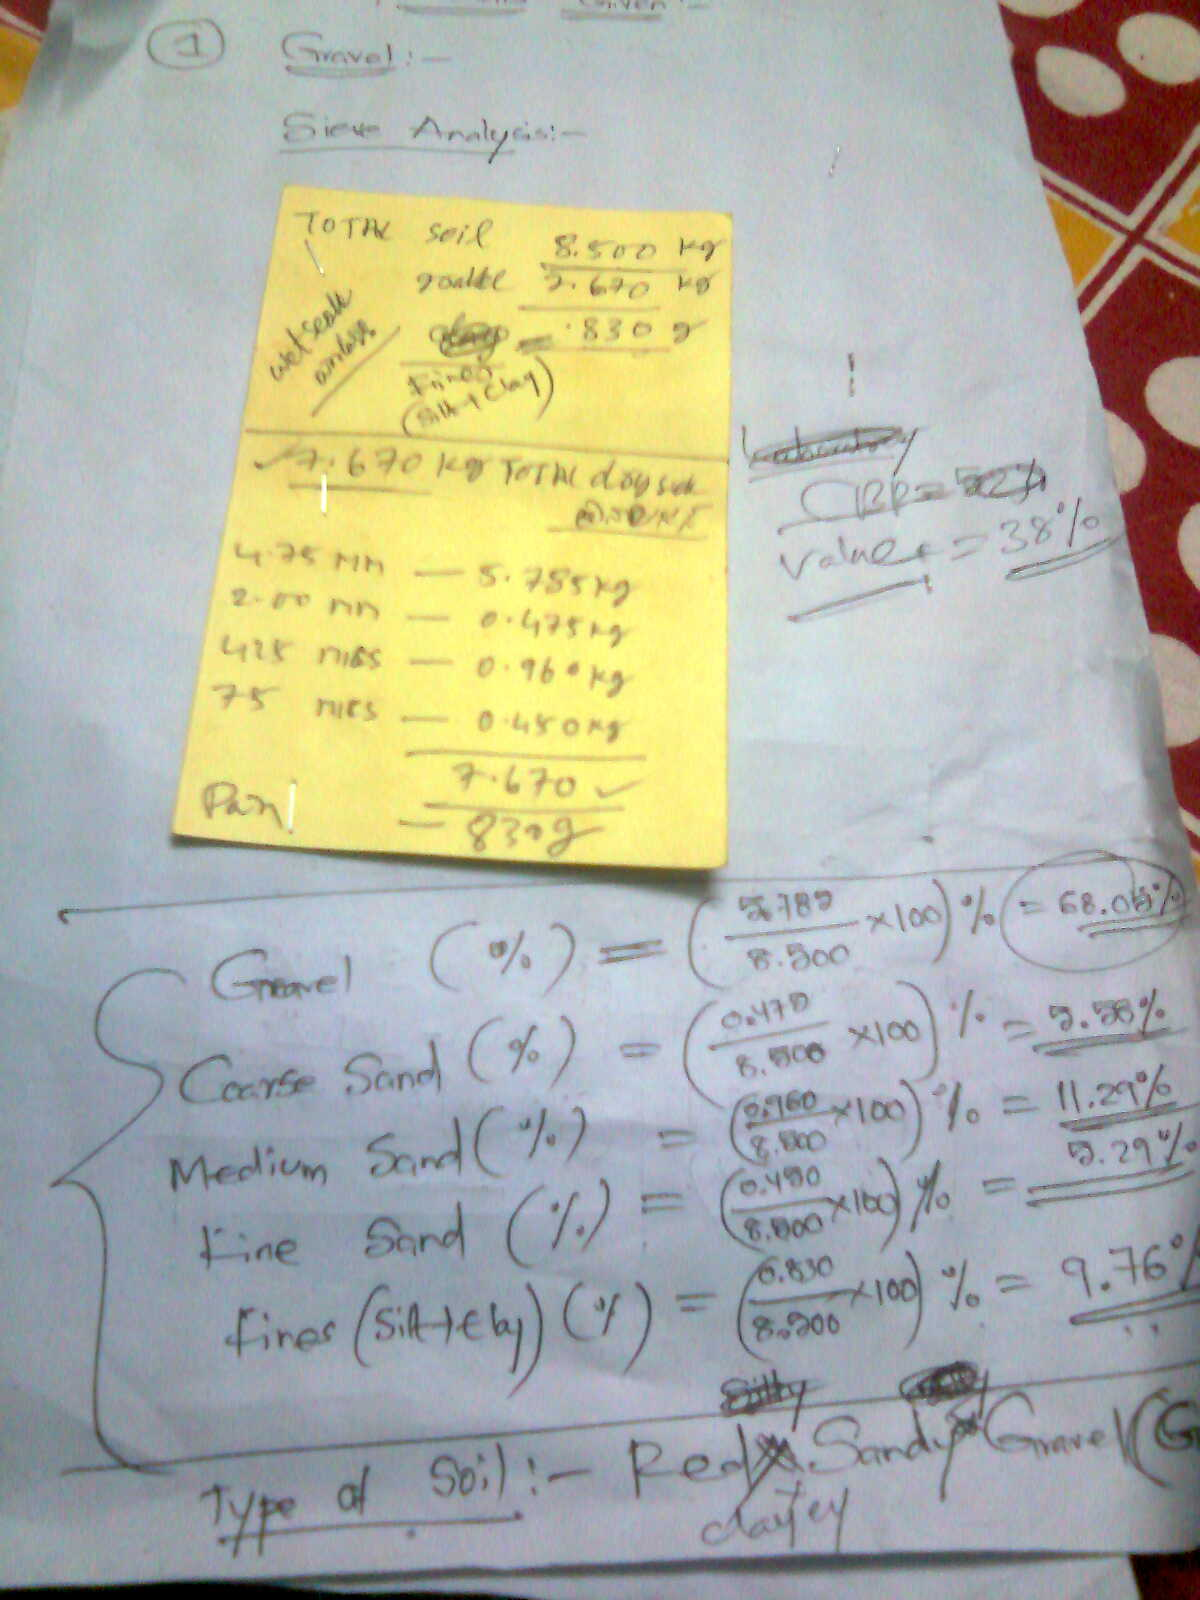 Given :-
1 Gravel :-
Sieve Analysis:-
TOTAL soil 8.500 kg
7.670 kg
= .830 g
wet soak
Fines
(Silt+Clay)
7.670 kg TOTAL dry
4.75 MM — 5.785 kg
2.00 MM — 0.475 kg
425 MICS — 0.960 kg
75 MICS — 0.450 kg
7.670
Pan — 830g
CBR =
value = 38%
Gravel (%) = (5.785/8.500 ×100)% = 68.05%
Coarse Sand (%) = (0.475/8.500 ×100)% = 5.58%
Medium Sand (%) = (0.960/8.500 ×100)% = 11.29%
Fine Sand (%) = (0.450/8.500 ×100)% = 5.29%
Fines (Silt+Clay) (%) = (0.830/8.500 ×100)% = 9.76%
Type of Soil :- Red Sandy Gravel (G
clayey